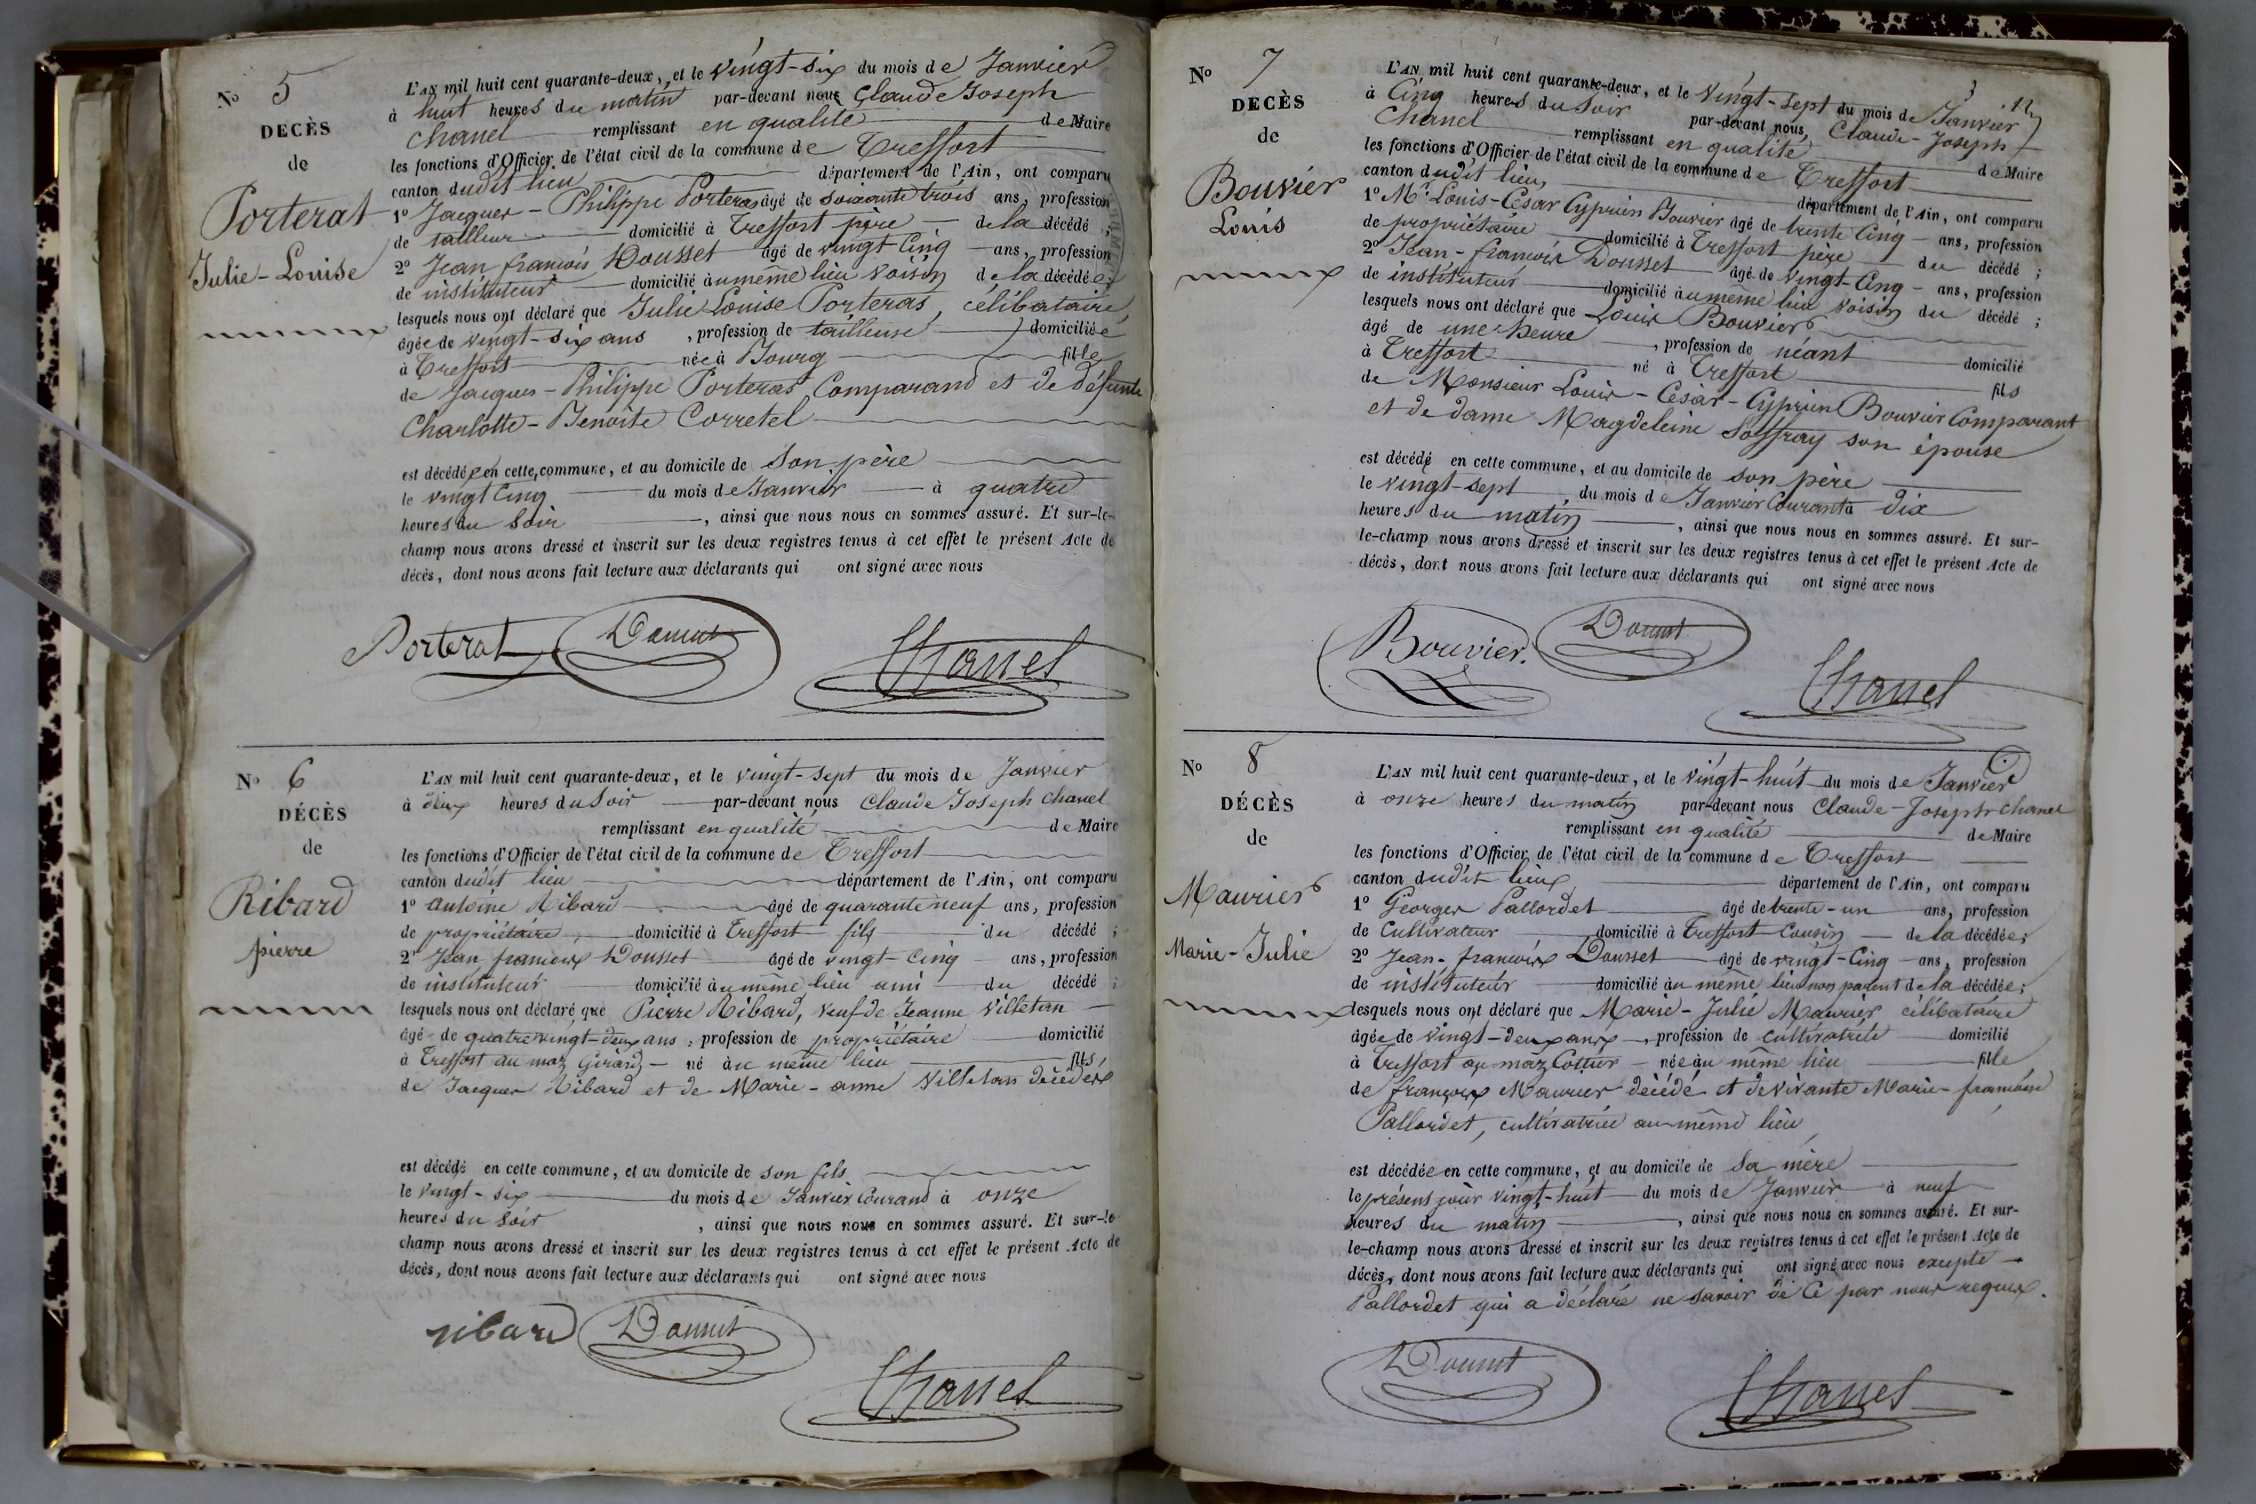 N° 5
DECÈS
de
Porterat
Julie-Louise
L'AN mil huit cent quarante-deux, et le vingt-six du mois de Janvier
à huit heures du matin par-devant nous Claude Joseph
Chanel remplissant en qualité de Maire
les fonctions d'Officier de l'état civil de la commune de Treffort
canton dudit lieu département de l'Ain, ont comparu
1° Jacques-Philippe Porteras âgé de soixante trois ans, profession
de tailleur domicilié à Treffort père de la décédé ;
2° Jean françois Dousset âgé de vingt Cinq ans, profession
de instituteur domicilié au même lieu voisin de la décédée ;
lesquels nous ont déclaré que Julie Louise Porteras, célibataire,
âgée de vingt-six ans, profession de tailleuse domiciliée
à Treffort née à Bourg fille
de Jacques-Philippe Porteras Comparand et de défunte
Charlotte-Benoite Corretel
est décédée en cette commune, et au domicile de son père
le vingt Cinq du mois de Janvier à quatre
heures du soir, ainsi que nous nous en sommes assuré. Et sur-le-
champ nous avons dressé et inscrit sur les deux registres tenus à cet effet le présent Acte de
décès, dont nous avons fait lecture aux déclarants qui ont signé avec nous
Porterat Dousset Chanel
N° 6
DÉCÈS
de
Ribard
pierre
L'AN mil huit cent quarante-deux, et le vingt-sept du mois de Janvier
à deux heures du Soir par-devant nous Claude Joseph Chanel
remplissant en qualité de Maire
les fonctions d'Officier de l'état civil de la commune de Treffort
canton dudit lieu département de l'Ain, ont comparu
1° antoine Ribard âgé de quarante neuf ans, profession
de propriétaire, domicilié à Treffort fils du décédé ;
2° Jean françois Dousset âgé de vingt-Cinq ans, profession
de instituteur domicilié au même lieu ami du décédé ;
lesquels nous ont déclaré que Pierre Ribard, veuf de Jeanne Villetan
âgé de quatre vingt-deux ans, profession de propriétaire domicilié
à Treffort au maz Girard né au même lieu fils,
de Jacques Ribard et de Marie-anne Villetan décédés
est décédé en cette commune, et au domicile de son fils
le vingt-six du mois de Janvier Courand à onze
heures du soir, ainsi que nous nous en sommes assuré. Et sur-le
champ nous avons dressé et inscrit sur les deux registres tenus à cet effet le présent Acte de
décès, dont nous avons fait lecture aux déclarants qui ont signé avec nous
ribard Dousset
Chanel
3
N° 7
DECÈS
de
Bouvier
Louis
L'AN mil huit cent quarante-deux, et le vingt-sept du mois de Janvier
à Cinq heures du Soir par-devant nous, Claude-Joseph
Chanel remplissant en qualité de Maire
les fonctions d'Officier de l'état civil de la commune de Treffort
canton dudit lieu, département de l'Ain, ont comparu
1° Mr Louis-César Cyprien Bouvier âgé de trente Cinq ans, profession
de propriétaire domicilié à Treffort père du décédé ;
2° Jean-françois Dousset âgé de vingt-Cinq ans, profession
de instituteur domicilié au même lieu voisin du décédé ;
lesquels nous ont déclaré que Louis Bouvier
âgé de une heure, profession de néant domicilié
à Treffort né à Treffort fils
de Monsieur Louis-César-Cyprien Bouvier Comparant
et de dame Magdeleine Soffray son épouse
est décédé en cette commune, et au domicile de son père
le vingt-sept du mois de Janvier Courant à dix
heures du matin, ainsi que nous nous en sommes assuré. Et sur-
le-champ nous avons dressé et inscrit sur les deux registres tenus à cet effet le présent Acte de
décès, dont nous avons fait lecture aux déclarants qui ont signé avec nous
Bouvier. Dousset
Chanel
N° 8
DÉCÈS
de
Maurier
Marie-Julie
L'AN mil huit cent quarante-deux, et le vingt-huit du mois de Janvier
à onze heures du matin par-devant nous Claude-Joseph Chanel
remplissant en qualité de Maire
les fonctions d'Officier de l'état civil de la commune de Treffort
canton dudit lieu département de l'Ain, ont comparu
1° Georges Pallordet âgé de trente-un ans, profession
de Cultivateur domicilié à Treffort Cousin de la décédée ;
2° Jean-françois Dousset âgé de vingt-Cinq ans, profession
de instituteur domicilié au même lieu non parent de la décédée ;
lesquels nous ont déclaré que Marie-Julie Maurier célibataire
âgée de vingt-deux ans, profession de cultivatrice domicilié
à Treffort au maz Cottur née au même lieu fille
de françois Maurier décédé et de vivante Marie-françoise
Pallordet, cultivatrice au même lieu
est décédée en cette commune, et au domicile de sa mère
le présent jour vingt-huit du mois de Janvier à neuf
heures du matin, ainsi que nous nous en sommes assuré. Et sur-
le-champ nous avons dressé et inscrit sur les deux registres tenus à cet effet le présent Acte de
décès, dont nous avons fait lecture aux déclarants qui ont signé avec nous excepté
Pallordet qui a déclaré ne savoir de Ce par nous requis.
Dousset
Chanel